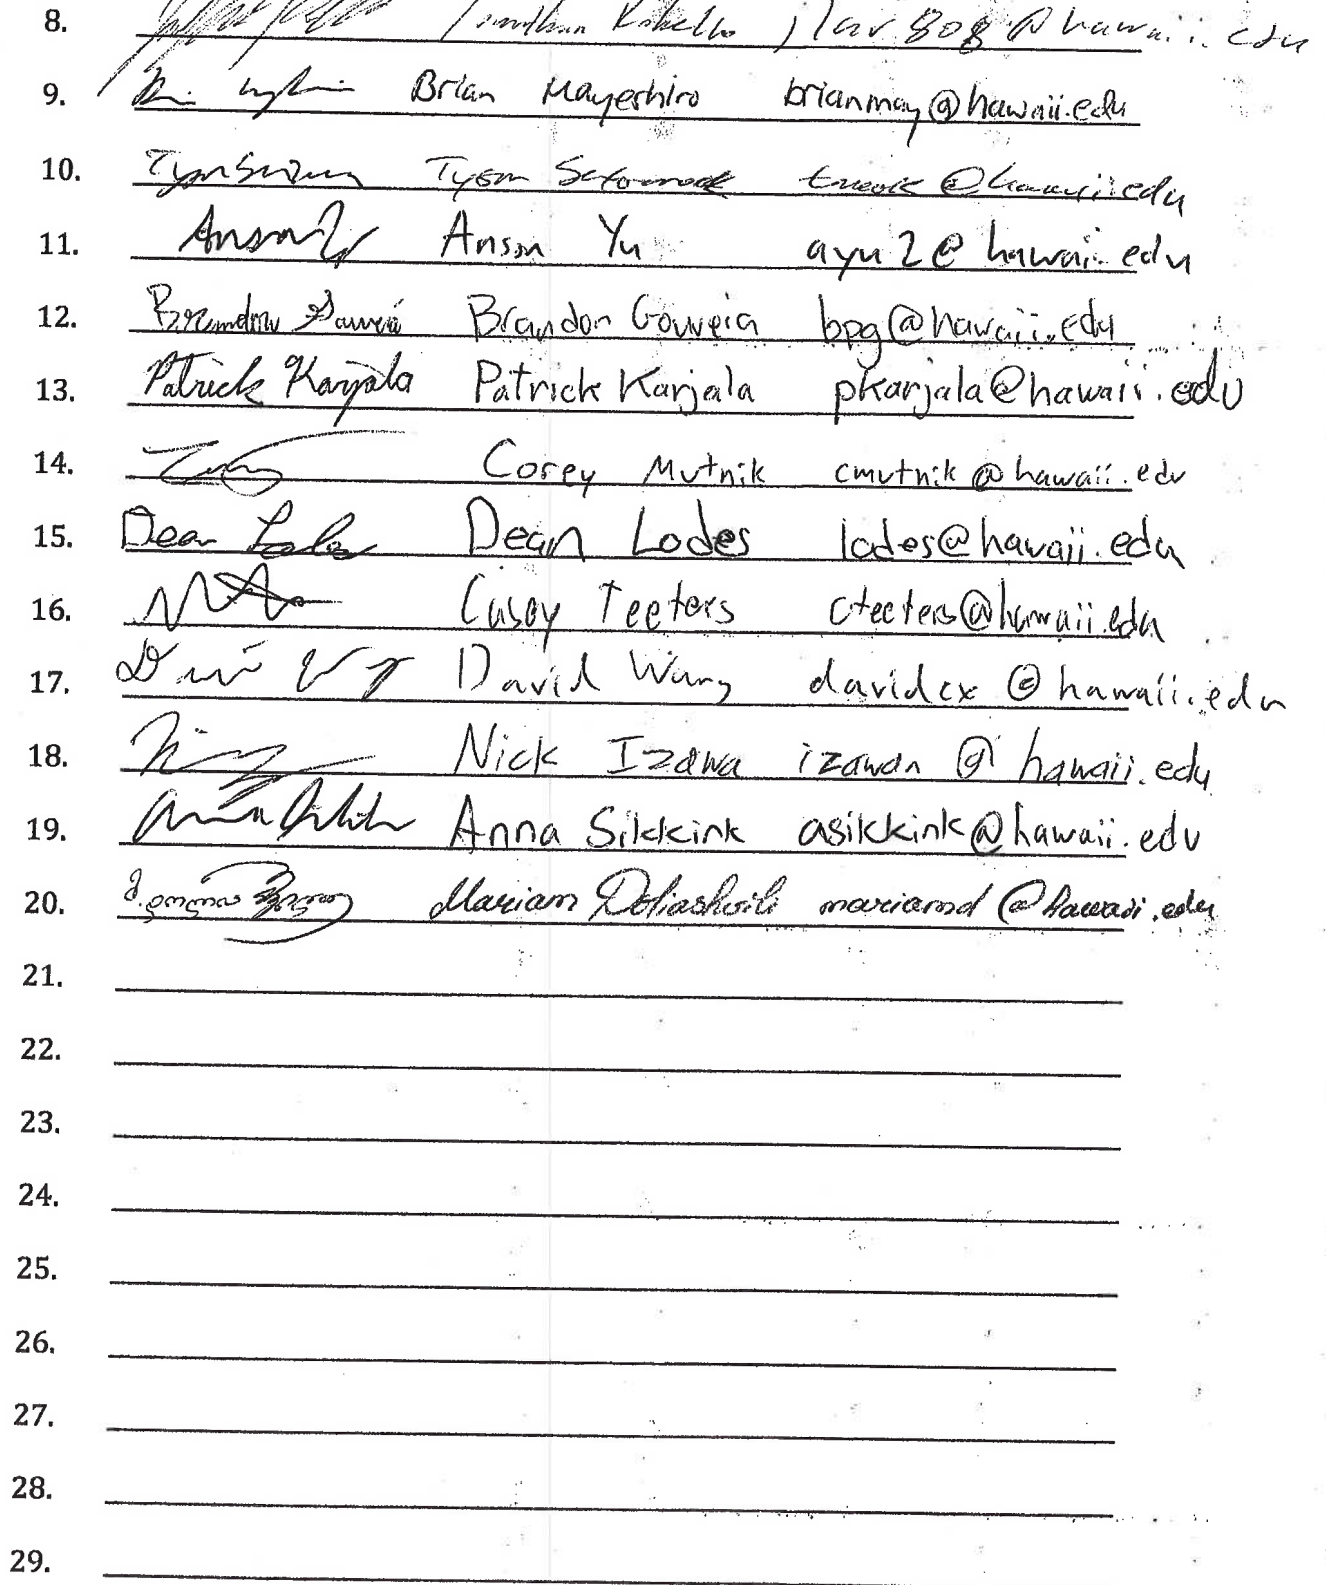 8. @hawaii.edu
9. Brian Mayeshiro brianmay@hawaii.edu
10. @hawaii.edu
11. Anson Yu Anson Yu ayu2@hawaii.edu
12. Brandon Gouveia Brandon Gouveia bpg@hawaii.edu
13. Patrick Karjala Patrick Karjala pkarjala@hawaii.edu
14. Corey Mutnik cmutnik@hawaii.edu
15. Dean Lodes Dean Lodes lodes@hawaii.edu
16. Casey Teeters cteeters@hawaii.edu
17. David Wang davidcx@hawaii.edu
18. Nick Izawa izawan@hawaii.edu
19. Anna Sikkink asikkink@hawaii.edu
20. Mariam Doliashvili mariamd@hawaii.edu
21.
22.
23.
24.
25.
26.
27.
28.
29.